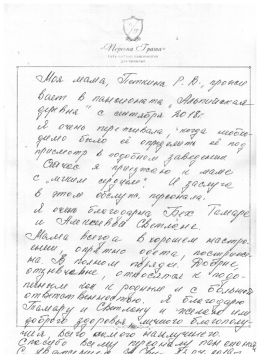 «Персона Грата»
Моя мама, Петкина Р. В., прожи
вает в пансионате „Альпийская
деревня" с сентября 2018г.
Я очень переживала, когда необхо
димо было её определить её под
присмотр в подобном заведении
Сейчас я приезжаю к маме
с легким сердцем. И заслуга
в этом обслуж. персонала.
Я очень благодарна Тамаре
и Светлане.
Мама всегда в хорошем настро
ении, опрятно одета, постриже
на. В полном порядке. Добрые
отзывчивые, относятся к подо
печным как к родным и с большой
ответственностью. Я благодарю
Тамару и Светлану и желаю им
доброго здоровья, личного благополу
чия всего самого наилучшего.
Спасибо всему персоналу пансионата